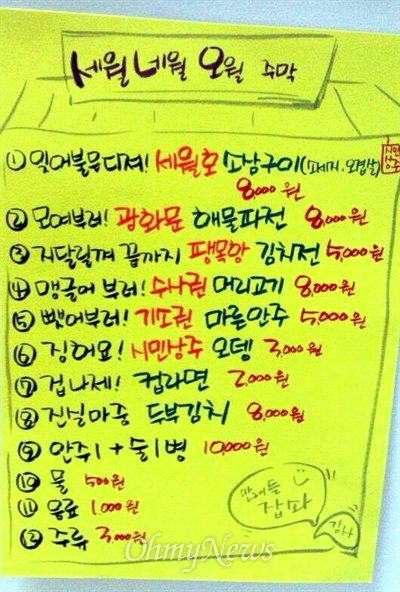 세월 네월 오월 주막
① 잊어불믄 디져! 세월호 소남구이(소세지, 오겹살)
시민상주
8,000원
② 모여부러! 광화문 해물파전 8,000원
③ 지달릴껴 끝까지 팽목항 김치전 5,000원
④ 맹글어 부러! 수사권 머리고기 8,000원
⑤ 뺏어부러! 기소권 마른안주 5,000원
⑥ 징해요! 시민상주 오뎅 3,000원
⑦ 겁나제! 컵라면 2,000원
⑧ 진실마중 두부김치 8,000원
⑨ 안주1 + 술1병 10,000원
⑩ 물 500원
⑪ 음료 1,000원
⑫ 주류 3,000원
잡파
감사
OhmyNews